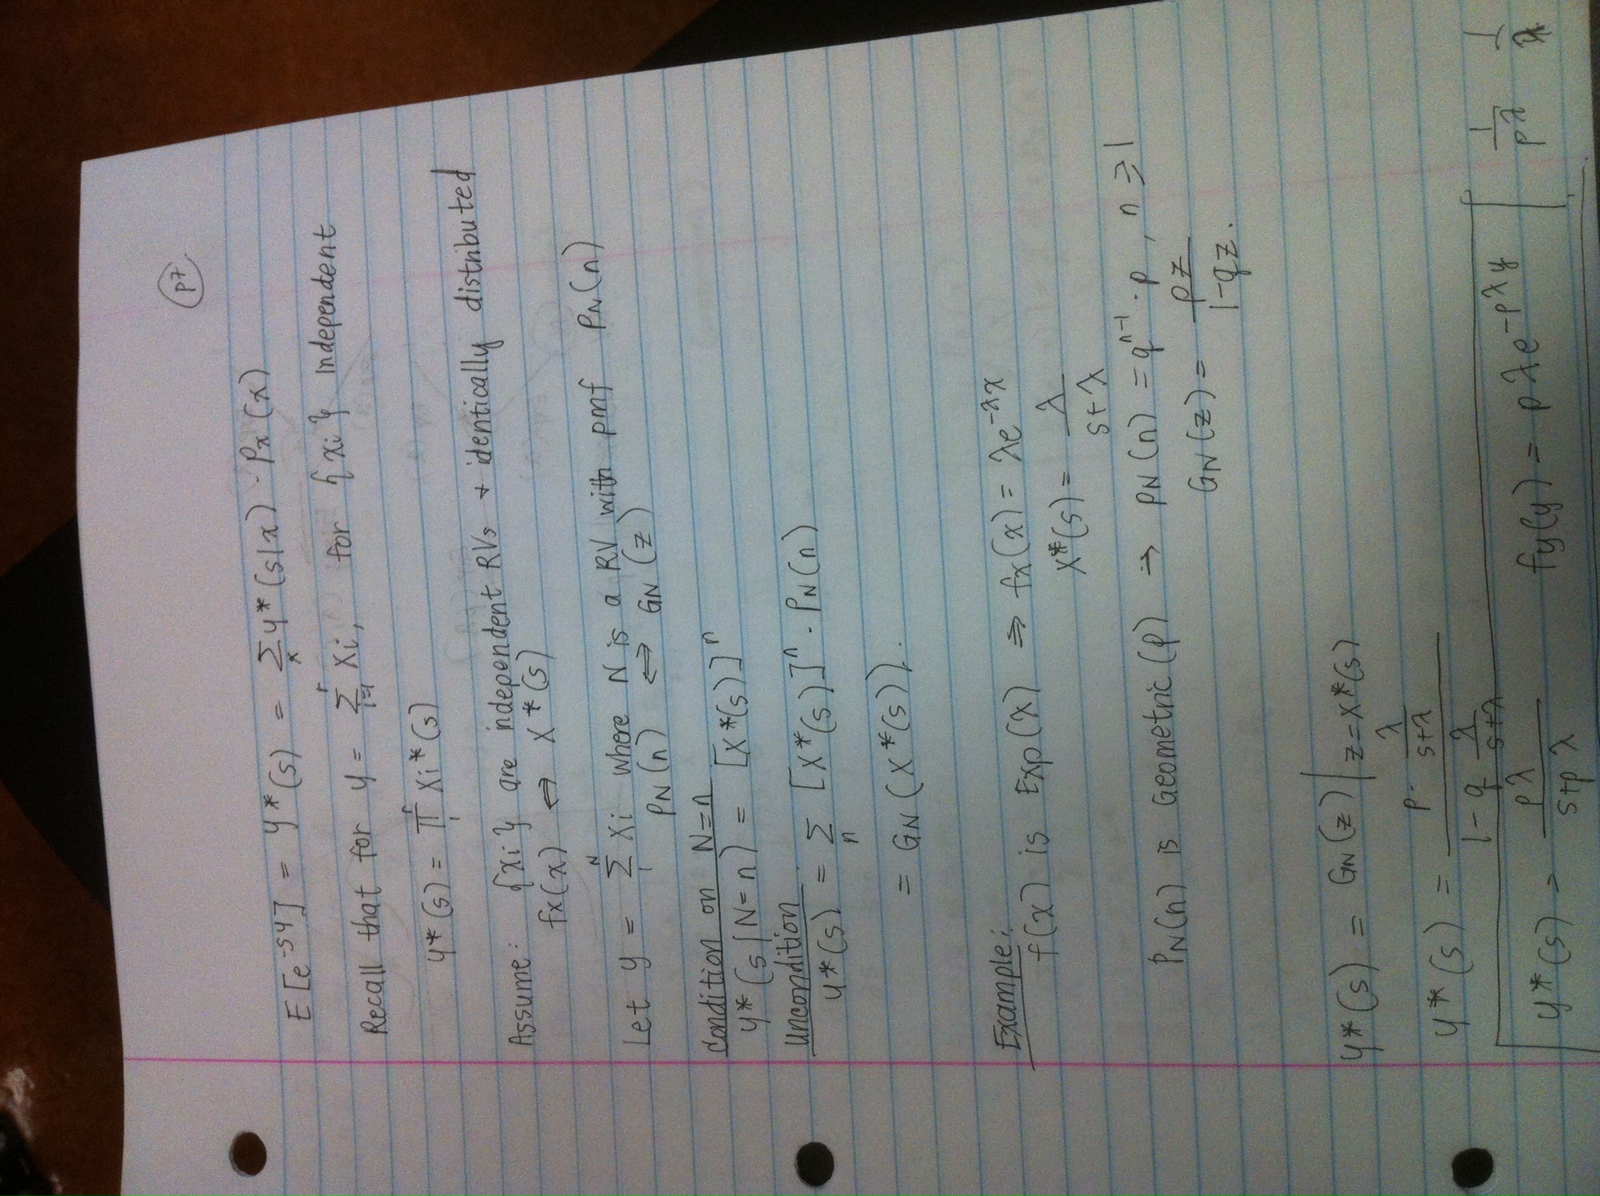 p7
E[e^-sy] = y*(s) = Σ_x y*(s|x) · Px(x)
Recall that for y = Σ_{i=1}^r Xi, for {xi} independent
y*(s) = Π_1^r Xi*(s)
Assume: {xi} are independent RVs + identically distributed
fx(x) ⇔ X*(s)
Let y = Σ_1^N Xi where N is a RV with pmf PN(n)
PN(n) ⇔ GN(z)
Condition on N=n
y*(s|N=n) = [X*(s)]^n
Uncondition
y*(s) = Σ_n [X*(s)]^n · PN(n)
= GN(X*(s)).
Example:
f(x) is Exp(λ) ⇒ fx(x) = λe^-λx
X*(s) = λ/(s+λ)
PN(n) is Geometric(p) → PN(n) = q^n-1 · p, n ≥ 1
GN(z) = pz/(1-qz).
y*(s) = GN(z)|z=X*(s)
y*(s) = (p · λ/(s+λ))/(1-q λ/(s+λ))
y*(s) = pλ/(s+pλ) fy(y) = pλe^-pλy 1/pλ 1/λ